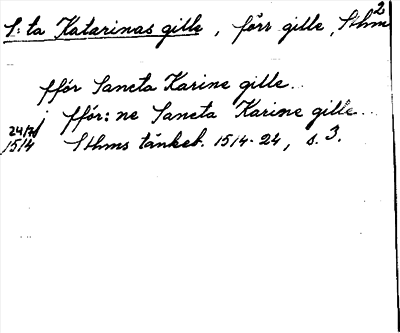 S:ta Katarinas gille, förr gille, Sthm 2
ffór Sancta Karine gille..
j ffór: ne Sancta Karine gille...
24/7
1514 Sthms tänkeb. 1514-24, s. 3.